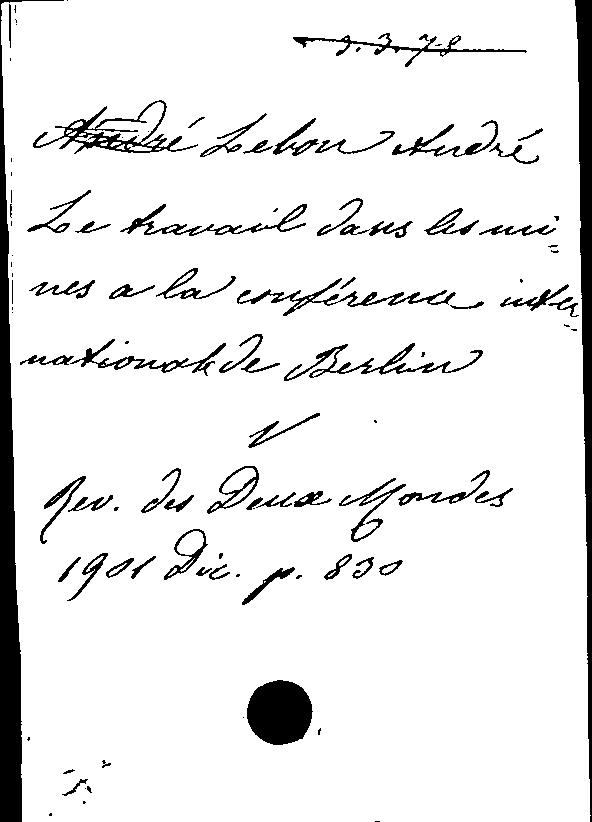 3.3.78
André Lebon André
Le travail dans les mi=
nes a la conférence inter=
nationale de Berlin
V
Rev. des Deux Mondes
1901 Dic. p. 830